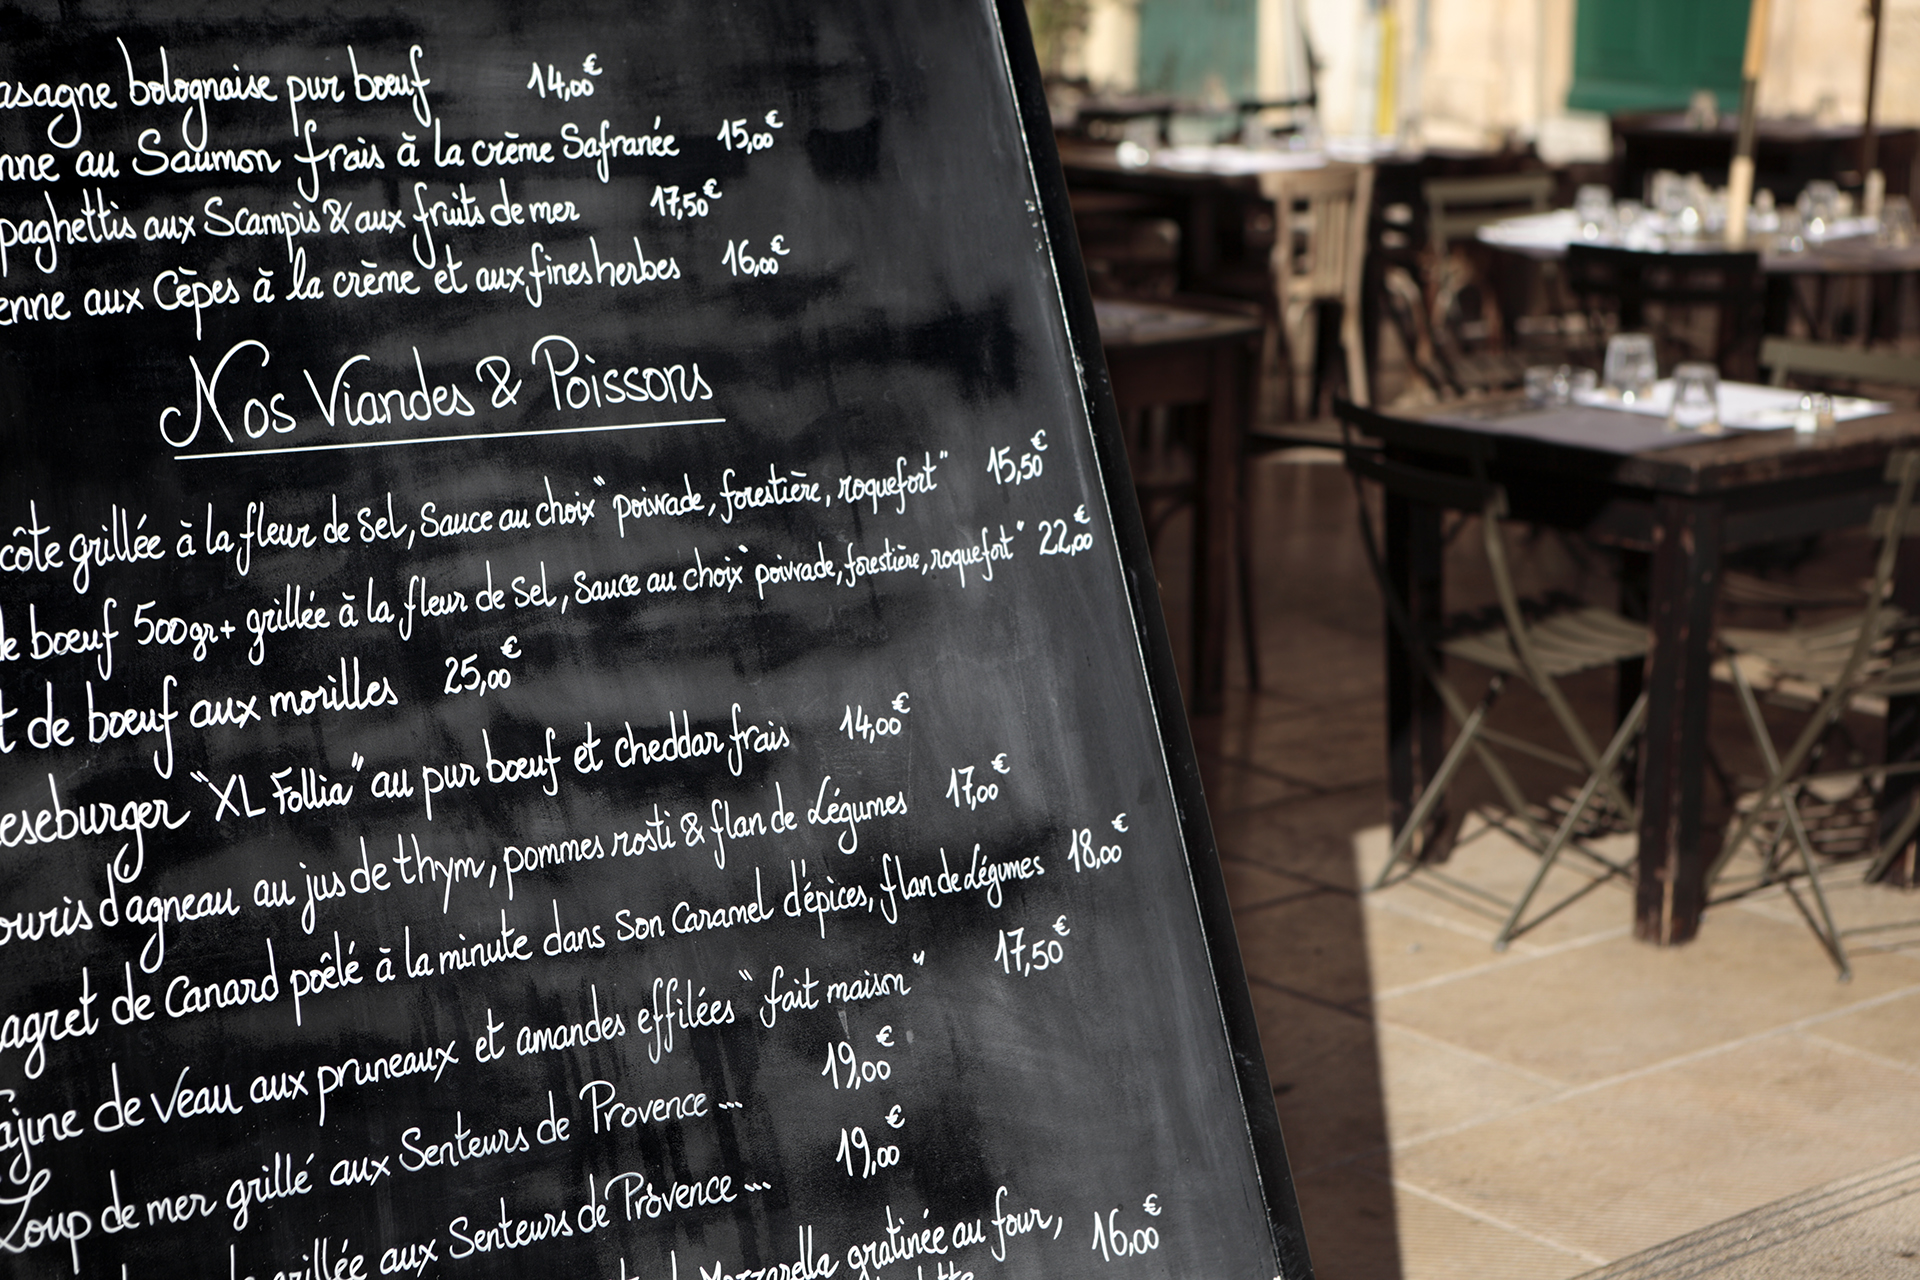 asagne bolognaise pur bœuf 14,00€
nne au Saumon frais à la crème Safranée 15,00€
paghettis aux Scampis & aux fruits de mer 17,50€
enne aux Cèpes à la crème et aux fines herbes 16,00€
Nos Viandes & Poissons
côte grillée à la fleur de Sel, Sauce au choix "poivrade, forestière, roquefort" 15,50€
de bœuf 500gr+ grillée à la fleur de Sel, Sauce au choix "poivrade, forestière, roquefort" 22,00€
t de bœuf aux morilles 25,00€
eseburger "XL Follia" au pur bœuf et cheddar frais 14,00€
ouris d'agneau au jus de thym, pommes rosti & flan de Légumes 17,00€
agret de Canard poêlé à la minute dans Son Caramel d'épices, flan de Légumes 18,00€
ajine de Veau aux pruneaux et amandes effilées "fait maison" 17,50€
Loup de mer grillé aux Senteurs de Provence ... 19,00€
grillée aux Senteurs de Provence ... 19,00€
Mozzarella gratinée au four, 16,00€